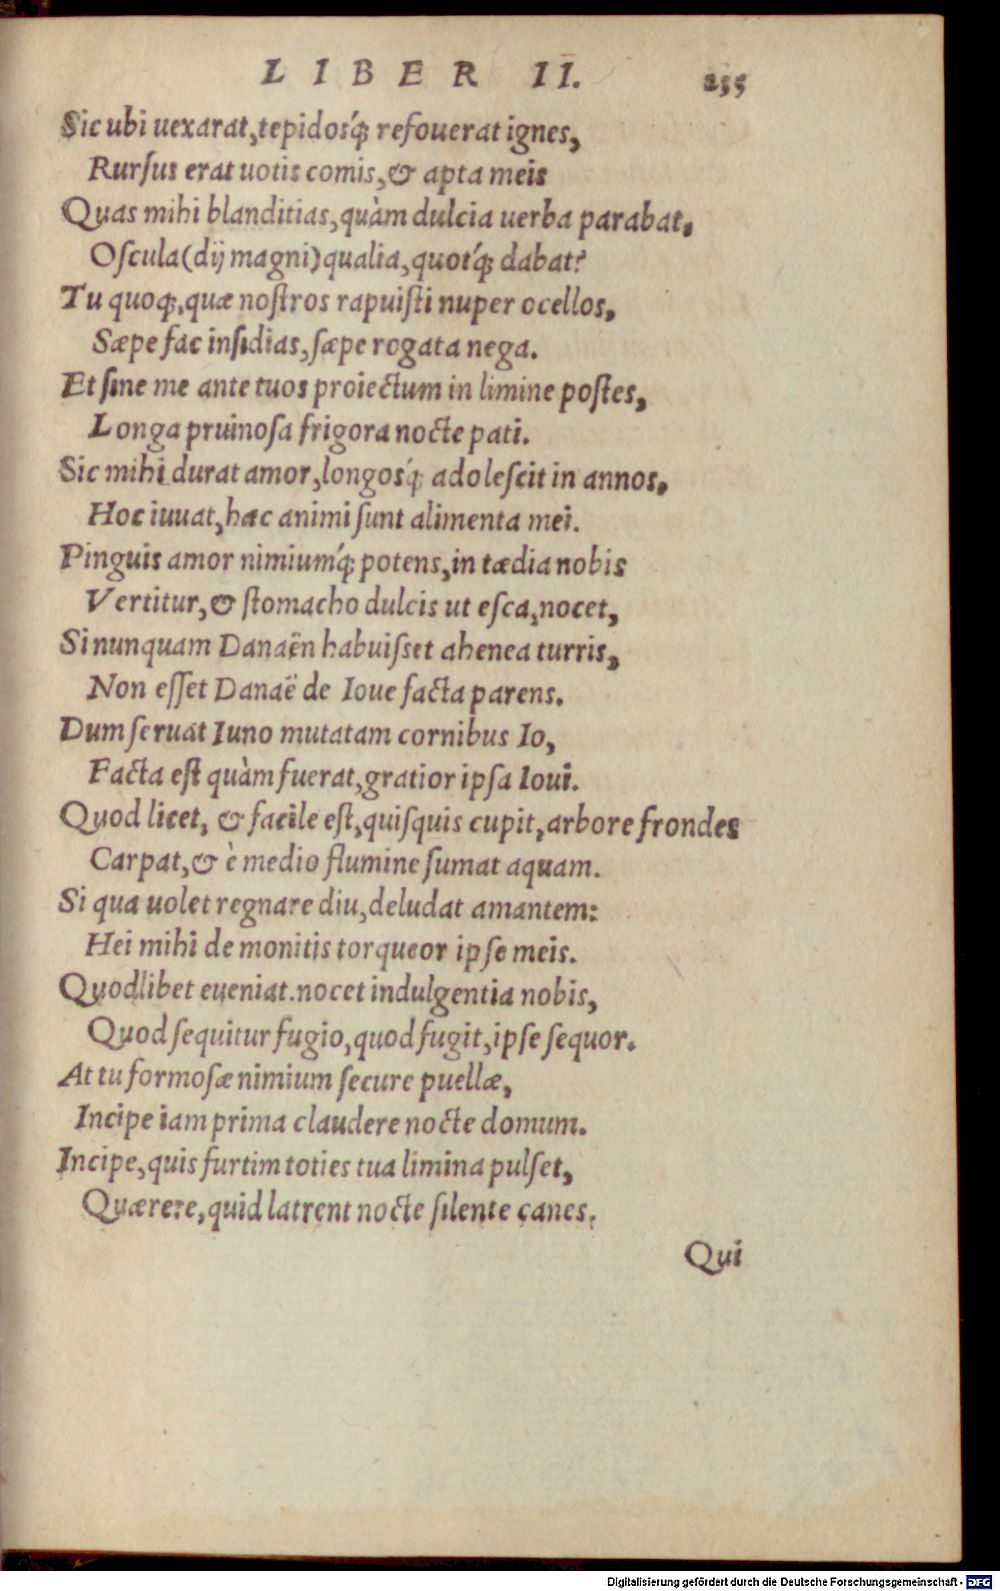 LIBER II. 255
Sic ubi uexarat, tepidosq́; refouerat ignes,
Rursus erat uotis comis, & apta meis
Quas mihi blanditias, quàm dulcia uerba parabat,
Oscula (dij magni) qualia, quotq́; dabat?
Tu quoq;, quæ nostros rapuisti nuper ocellos,
Sæpe fac insidias, sæpe rogata nega.
Et sine me ante tuos proiectum in limine postes,
Longa pruinosa frigora nocte pati.
Sic mihi durat amor, longosq́; adolescit in annos,
Hoc iuuat, hæc animi sunt alimenta mei.
Pinguis amor nimiumq́; potens, in tædia nobis
Vertitur, & stomacho dulcis ut esca, nocet,
Si nunquam Danaën habuisset ahenea turris,
Non esset Danaë de Ioue facta parens.
Dum seruat Iuno mutatam cornibus Io,
Facta est quàm fuerat, gratior ipsa Ioui.
Quod licet, & facile est, quisquis cupit, arbore frondes
Carpat, & è medio flumine sumat aquam.
Si qua uolet regnare diu, deludat amantem:
Hei mihi de monitis torqueor ipse meis.
Quodlibet eueniat. nocet indulgentia nobis,
Quod sequitur fugio, quod fugit, ipse sequor.
At tu formosæ nimium secure puellæ,
Incipe iam prima claudere nocte domum.
Incipe, quis furtim toties tua limina pulset,
Quærere, quid latrent nocte silente canes.
Qui
Digitalisierung gefördert durch die Deutsche Forschungsgemeinschaft - DFG